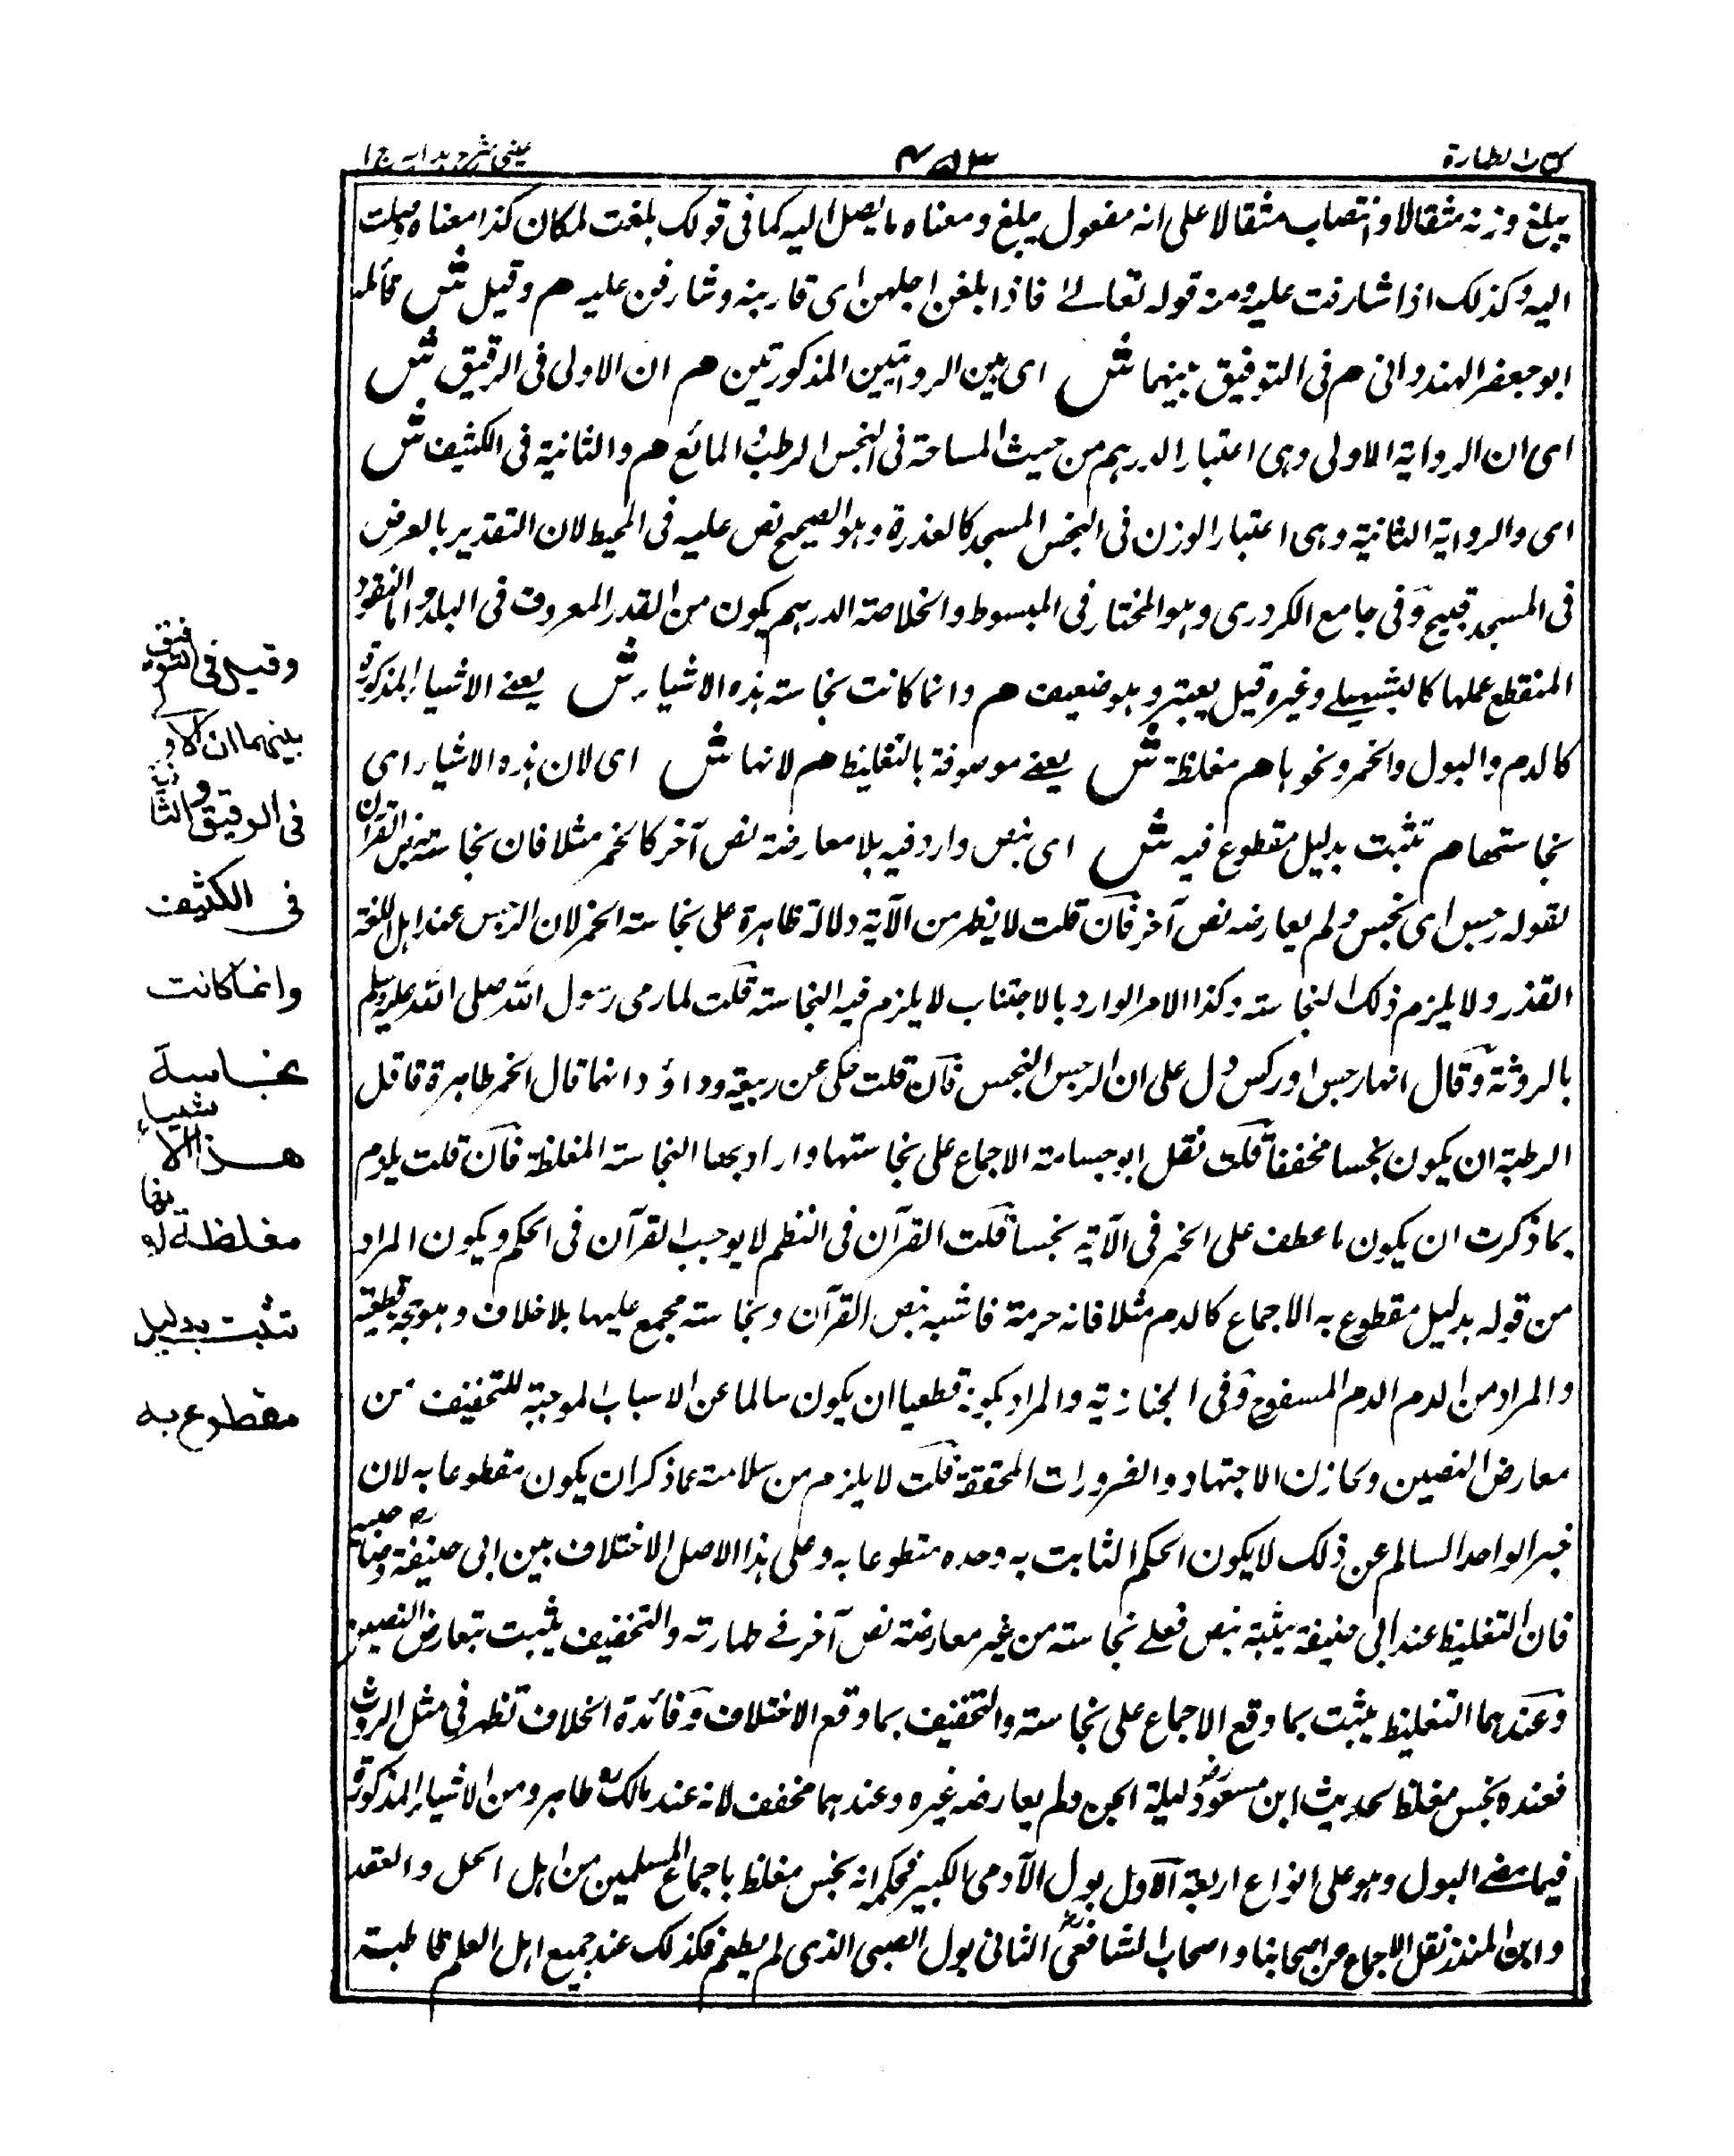 كتاب الطهارة
٤٥٣
عینی شرح ہدایہ ج ا
يبلغ وزنه مثقالا وانتصاب مثقالا على انه مفعول يبلغ ومعناه ما يصل اليه كما فى قولك بلغت لمكان كذا معناه وصلت
اليه وكذلك اذا شارفت عليه ومنه قوله تعالى فاذا بلغن اجلهن اى قاربنه وشارفن عليه م وقيل ش قائله
ابو جعفر الهندوانى م فى التوفيق بينهما ش اى بين الروايتين المذكورتين م ان الاولى فى الرقيق ش
اى ان الرواية الاولى وهى اعتبار الدرهم من حيث المساحة فى النجس الرطب المائع م والثانية فى الكثيف ش
اى والرواية الثانية وهى اعتبار الوزن فى النجس المستجسد كالعذرة وهو الصحيح نص عليه فى المحيط لان التقدير بالعرض
فى المستجسد قبيح وفى جامع الكردرى وهو المختار فى المبسوط والخلاصة الدرهم يكون من القدر المعروف فى البلد واما النقود
المنقطع عملها كالشهيلے وغيره قيل يعتبر وهو ضعيف م وانما كانت نجاسة هذه الاشياء ش يعنے الاشياء المذكورة
كالدم والبول والخمر ونحوها م مغلظة ش يعنے موصوفة بالتغليظ م لانها ش اى لان هذه الاشياء اى
نجاستها م تثبت بدليل مقطوع فيه ش اى بنص وارد فيه بلا معارضة نص آخر كالخمر مثلا فان نجاسته بنص القرآن
لقوله رجس اى نجس ولم يعارضه نص آخر فان قلت لا يظهر من الآية دلالة ظاهرة على نجاسة الخمر لان الرجس عند اهل اللغة
القذر ولا يلزم ذلك النجاسة وكذا الامر الوارد بالاجتناب لا يلزم فيه النجاسة قلت لما رمى رسول الله صلى الله عليه وسلم
بالروثة وقال انها رجس او ركس دل على ان الرجس النجس فان قلت حكى عن ربيعة وداؤد انهما قال الخمر طاهرة فاقل
الرطبة ان يكون نجسا مخففا قلت نقل ابو حسامة الاجماع على نجاستها واراد بها النجاسة المغلظة فان قلت يلزم
بما ذكرت ان يكون ما عطف على الخمر فى الآية نجسا قلت القرآن فى النظم لا يوجب القرآن فى الحكم ويكون المراد
من قوله بدليل مقطوع به الاجماع كالدم مثلا فانه حرمة فاشبه بنص القرآن ونجاسته مجمع عليها بلا خلاف وهو حجة قطعية
والمراد من الدم الدم المسفوح وفى الجنازية والمراد بكونه قطعيا ان يكون سالما عن الاسباب الموجبة للتخفيف من
معارض النصين وتجاذب الاجتهاد والضرورات المحققة قلت لا يلزم من سلامته عما ذكر ان يكون مقطوعا به لان
خبر الواحد السالم عن ذلك لا يكون الحكم الثابت به وحده مقطوعا به وعلى هذا الاصل الاختلاف بين ابى حنيفة وصاحبيه
فان التغليظ عند ابى حنيفة يثبته بنص فعلے نجاسته من غير معارضة نص آخر فے طهارته والتخفيف يثبت بتعارض النصين
وعندهما التغليظ يثبت بما وقع الاجماع على نجاسته والتخفيف بما وقع الاختلاف وفائدة الخلاف تظهر فى مثل الروث
فعنده نجس مغلظ لحديث ابن مسعودؓ ليلة الجن ولم يعارضه غيره وعندهما مخفف لانه عند مالكؒ طاهر ومن الاشياء المذكورة
فيما مضے البول وهو على انواع اربعة الاول بول الآدمى الكبير فحكمه انه نجس مغلظ باجماع المسلمين من اهل الحل والعقد
وابن المنذر نقل الاجماع من اصحابنا واصحاب الشافعىؒ الثانى بول الصبى الذى لم يطعم فكذلك عند جميع اهل العلم قاطبة
وقيل فى التوفيق
بينهما ان الاولى
فى الرقيق والثانية
فى الكثيف
وانما كانت
نجاسة
هذه الاشياء
مغلظة لانها
تثبت بدليل
مقطوع به